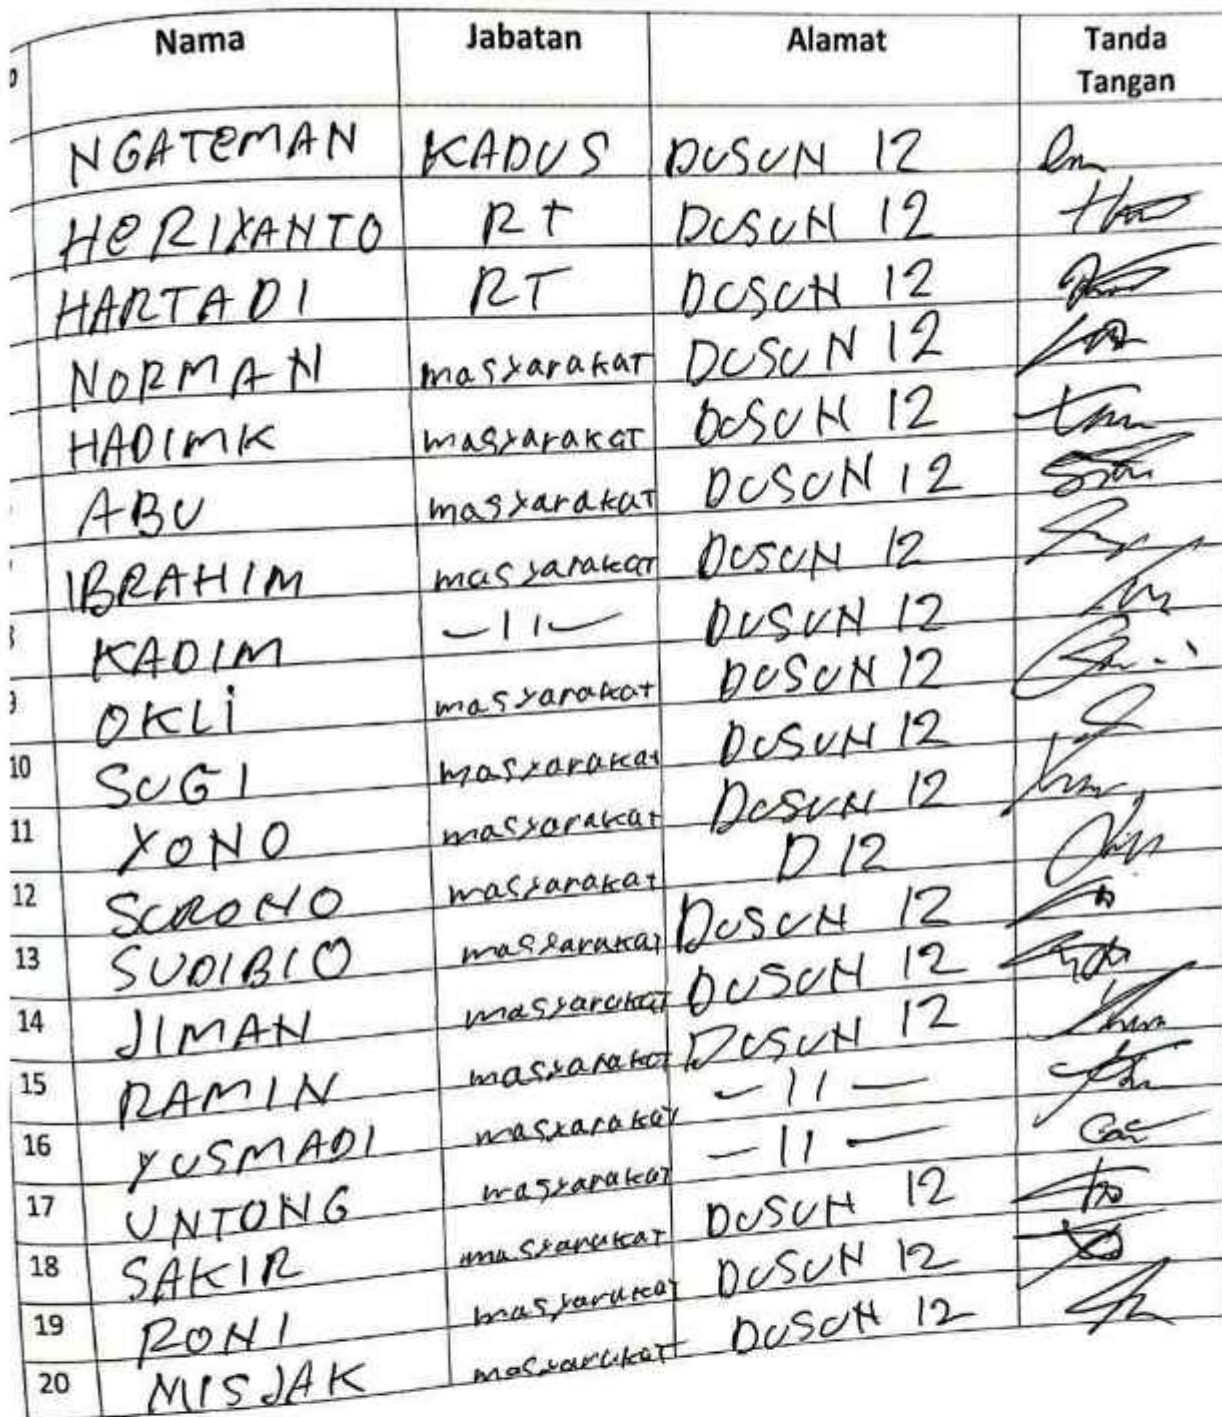 Nama Jabatan Alamat Tanda Tangan
NGATEMAN KADUS DUSUN 12
HERIYANTO RT DUSUN 12
HARTADI RT DUSUN 12
NORMAN masyarakat DUSUN 12
HADIMK masyarakat DUSUN 12
ABU masyarakat DUSUN 12
IBRAHIM masyarakat DUSUN 12
KADIM –11– DUSUN 12
9 OKLi masyarakat DUSUN 12
10 SUGI masyarakat DUSUN 12
11 YONO masyarakat DUSUN 12
12 SURONO masyarakat D 12
13 SUDIBIO masyarakat DUSUN 12
14 JIMAN masyarakat DUSUN 12
15 RAMIN masyarakat DUSUN 12
16 YUSMADI masyarakat –11–
17 UNTONG masyarakat –11–
18 SAKIR masyarakat DUSUN 12
19 RONI masyarakat DUSUN 12
20 MISJAK masyarakat DUSUN 12